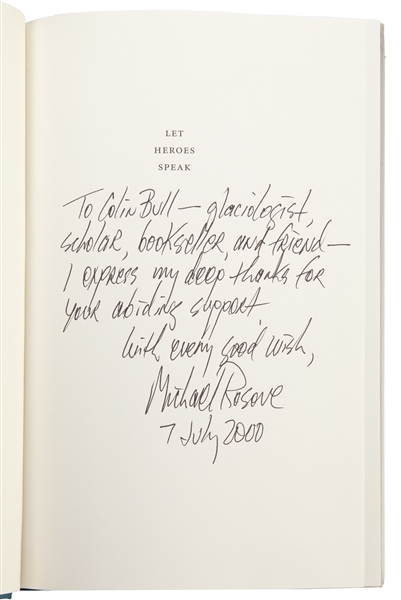 LET
HEROES
SPEAK
To Colin Bull — glaciologist,
scholar, bookseller, and friend —
I express my deep thanks for
your abiding support
With every good wish,
Michael Rosove
7 July 2000